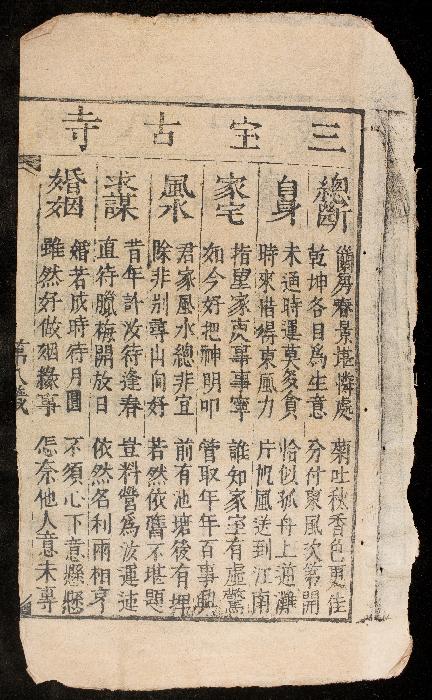 三宝古寺
總斷
蘭芳春景堪憐處 菊吐秋香色更佳
乾坤各日為生意 分付東風次第開
自身
未通時運莫多貪 恰似孤舟上逆灘
時來借得東風力 片帆風送到江南
家宅
指望家庭事事寧 誰知家室有虛驚
如今好把神明叩 管取年年百事興
風水
君家風水總非宜 前有池塘後有埤
除非别尋山向好 若然依舊不堪題
求謀
昔年計汝待逢春 豈料營為汝運
直待臘梅開放日 依然名利兩相亨
婚姻
婚若成時待月圓 不須心下意懸懸
雖然好做姻緣事 怎奈他人意未專
第八籤